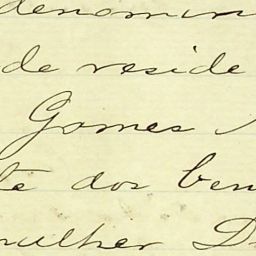 denomin
de reside
Gomes
te dos ben
mulher D